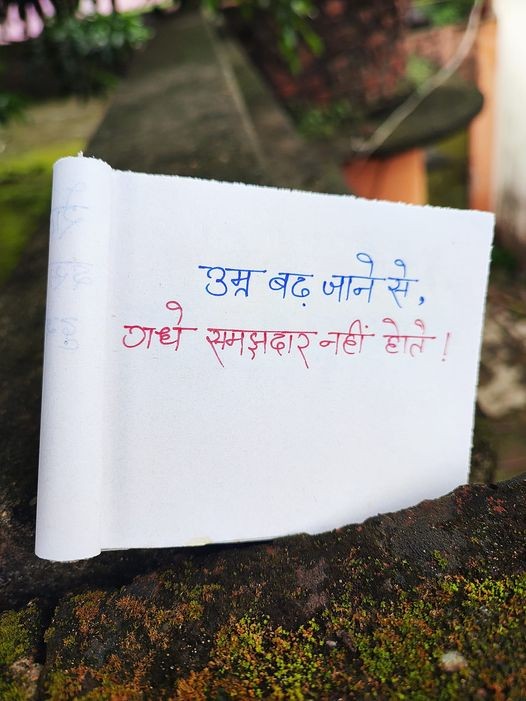 उम्र बढ़ जाने से,
गधे समझदार नहीं होते !